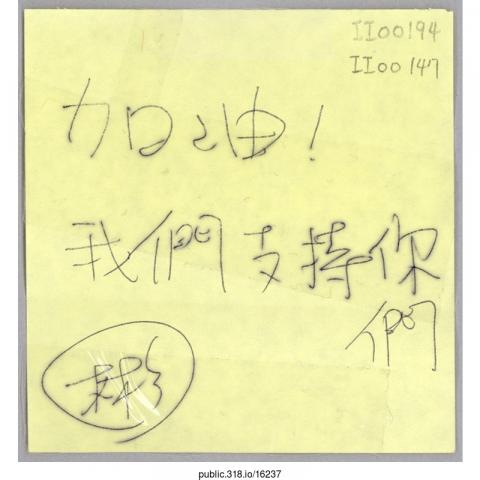 II00194
II00147
加油!
我們支持你
們
彬
public.318.io/16237